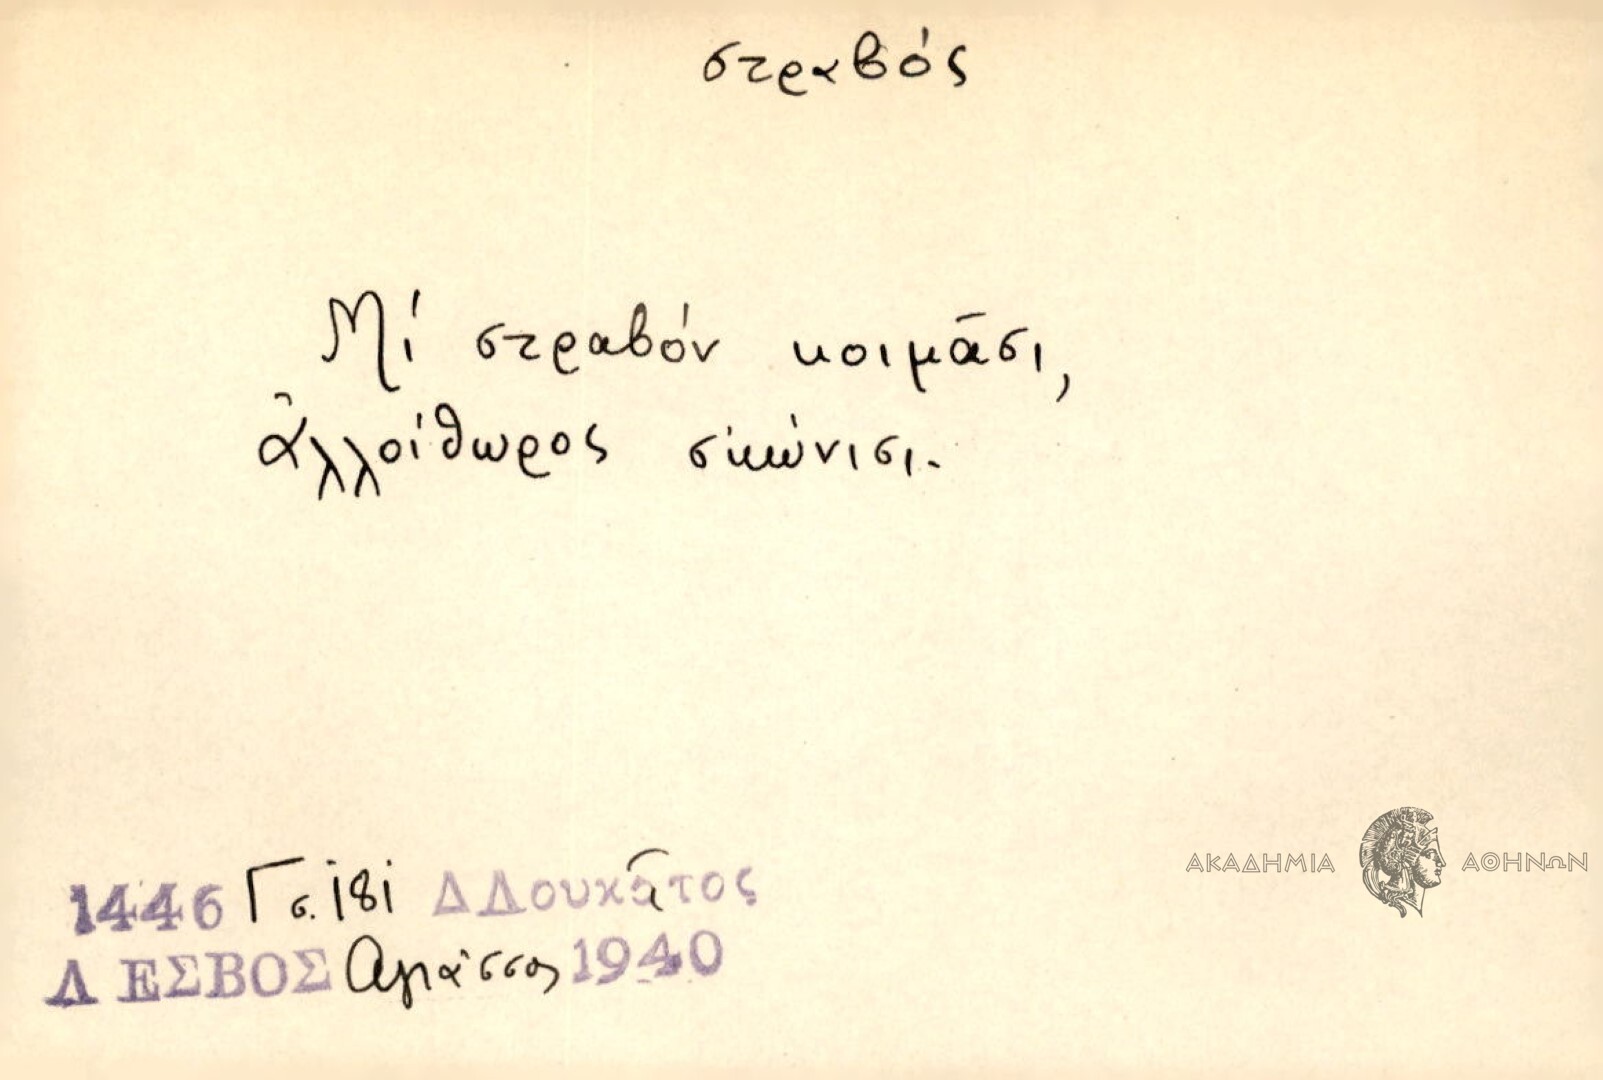 στραβός
Μί στραβόν κοιμᾶσι,
ἀλλοίθωρος σ'κώνισι.
1446 Γ σ. 181 Δ Δουκᾶτος
ΛΕΣΒΟΣ Ἀγιάσσος 1940
ΑΚΑΔΗΜΙΑ ΑΘΗΝΩΝ